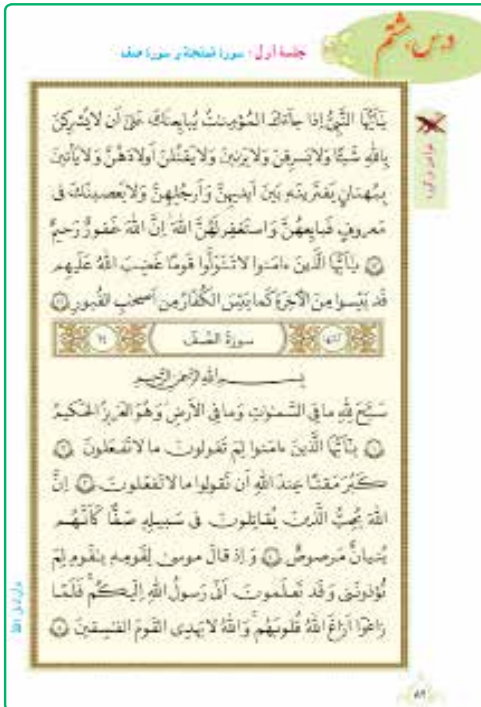 درس هشتم
جلسهٔ اول: سورهٔ ممتحنه و سورهٔ صف
يَـٰٓأَيُّهَا النَّبِيُّ إِذا جاءَكَ الْمُؤْمِناتُ يُبايِعْنَكَ عَلىٰ أَن لا يُشْرِكْنَ
بِاللهِ شَيْئًا وَلا يَسْرِقْنَ وَلا يَزْنينَ وَلا يَقْتُلْنَ أَوْلادَهُنَّ وَلا يَأْتينَ
بِبُهْتانٍ يَفْتَرينَهُ بَيْنَ أَيْديهِنَّ وَأَرْجُلِهِنَّ وَلا يَعْصينَكَ فى
مَعْروفٍ فَبايِعْهُنَّ وَاسْتَغْفِرْ لَهُنَّ اللهَ إِنَّ اللهَ غَفورٌ رَحيمٌ
۱۲ يـٰأَيُّهَا الَّذينَ ءامَنوا لا تَتَوَلَّوْا قَوْمًا غَضِبَ اللهُ عَلَيْهِمْ
قَدْ يَئِسوا مِنَ الْآخِرَةِ كَما يَئِسَ الْكُفّارُ مِنْ أَصْحابِ الْقُبورِ ۱۳
آياتها سورة الصّف ۱۴
بِسْمِ اللهِ الرَّحْمٰنِ الرَّحيمِ
سَبَّحَ لِلّٰهِ ما فِى السَّمٰوٰتِ وَما فِى الْأَرْضِ وَهُوَ الْعَزيزُ الْحَكيمُ
۱ يـٰأَيُّهَا الَّذينَ ءامَنوا لِمَ تَقولونَ ما لا تَفْعَلونَ ۲
كَبُرَ مَقْتًا عِنْدَ اللهِ أَن تَقولوا ما لا تَفْعَلونَ ۳ إِنَّ
اللهَ يُحِبُّ الَّذينَ يُقاتِلونَ فى سَبيلِهِ صَفًّا كَأَنَّهُم
بُنْيانٌ مَرْصوصٌ ۴ وَإِذْ قالَ موسىٰ لِقَوْمِهِ يـٰقَوْمِ لِمَ
تُؤْذونَنى وَقَدْ تَعْلَمونَ أَنّى رَسولُ اللهِ إِلَيْكُمْ فَلَمّا
زاغوا أَزاغَ اللهُ قُلوبَهُمْ وَاللهُ لا يَهْدِى الْقَوْمَ الْفاسِقينَ ۵
۵۹